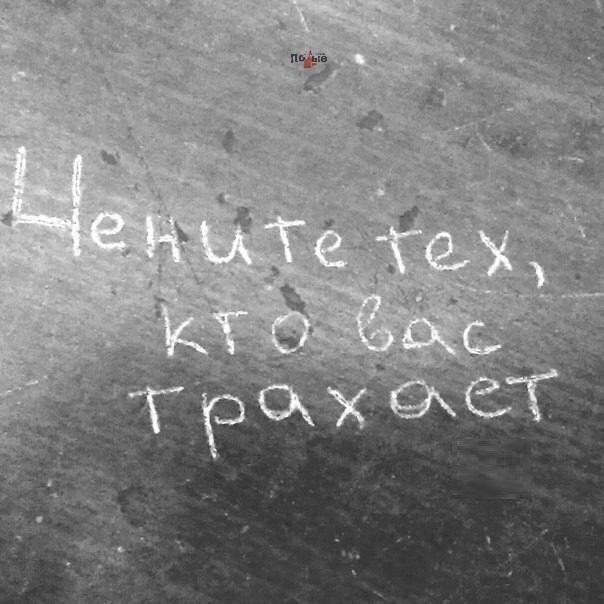 Цените тех,
кто вас
трахает